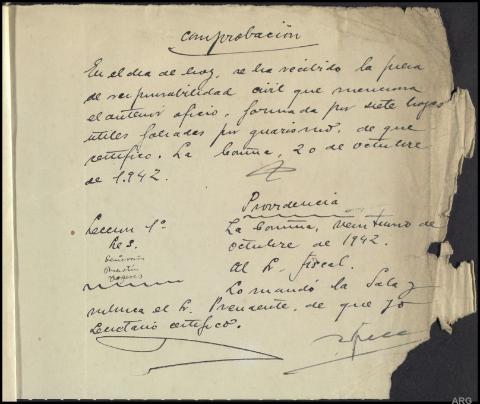 Comprobación
En el dia de hoy, se ha recibido la pieza
de responsabilidad civil que menciona
el anterior oficio, formada por siete hojas
utiles foliadas por guarismo, de que
certifico. La Coruña, 20 de octubre
de 1.942.
Providencia
Seccion 1ª
Res.
Señores
La Coruña, veintiuno de
octubre de 1942.
Al Sr. fiscal.
Lo mandó la Sala y
rubrica el Sr. Presidente, de que yo
Secretario certifico.
ARG